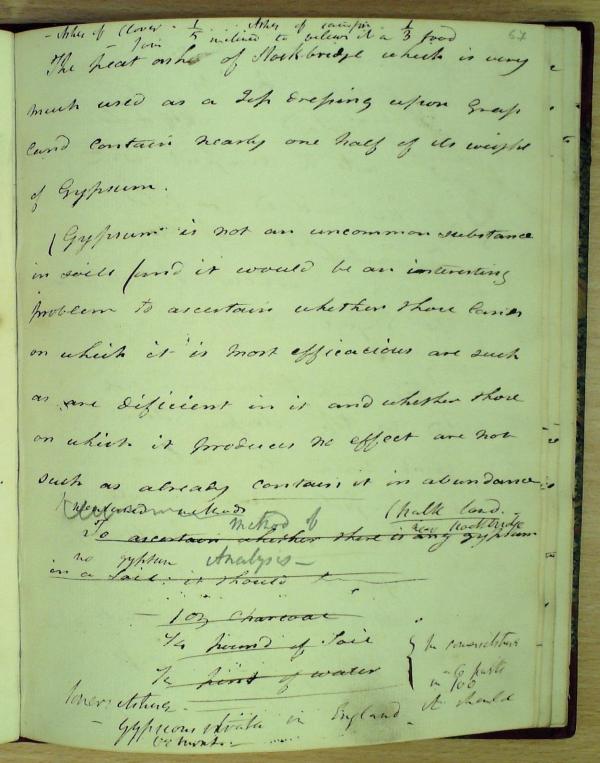 - Ashes of Clover - 1/5 .. Ashes of sainfoin 1/3
67
to a 1/3 food
The peat ashes of Stockbridge which is very
much used as a Top dressing upon Grass
land contain nearly one half of its weight
of Gypsum.
( Gypsum is not an uncommon substance
in soils (and it would be an interesting
problem to ascertain whether those lands
on which it is most efficacious are such
as are dificient in it and whether those
on which it produces no effect are not
such as already contain it in abundance
methods Chalk land.
Method of near Stockbridge
To ascertain whether there is any gypsum
no gypsum Analysis -
in a Soil: it should
- 1 oz charcoal
1/4 pound of Soil
1/2 pint of water
parts
in 100
It should
- Gypseous strata in England.